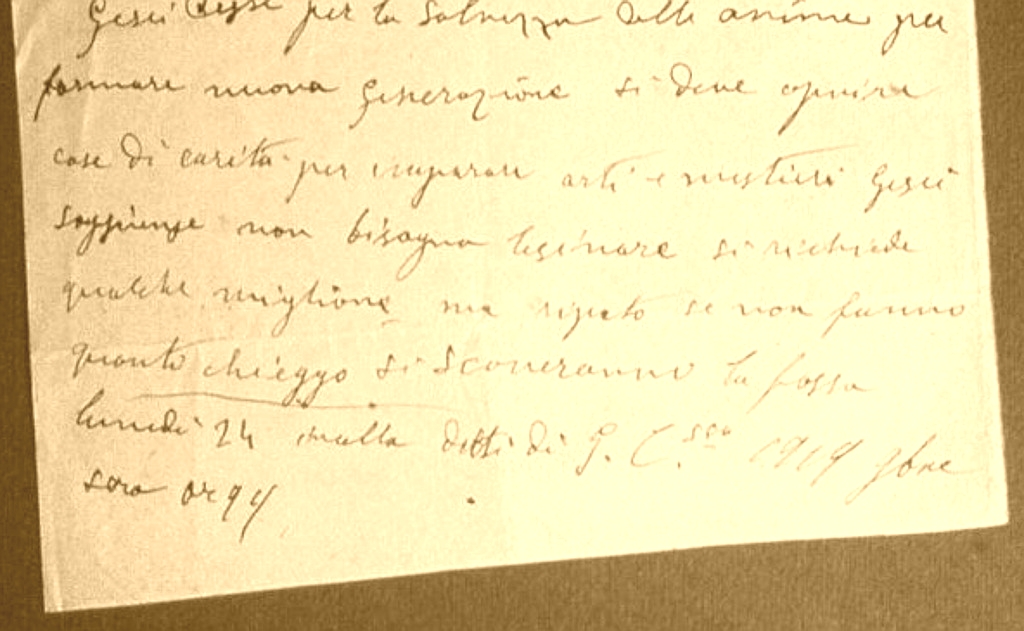 Gesù disse per la Salvezza delle anime per
formare nuova generazione si deve aprire
case di carità per imparare arti e mestieri Gesù
non bisogna lesinare si richiede
qualche miglione ma ripeto se non fanno
quanto chieggo si scaveranno la fossa
lunedì 24 detti di G. C. 1919
sera ore 9